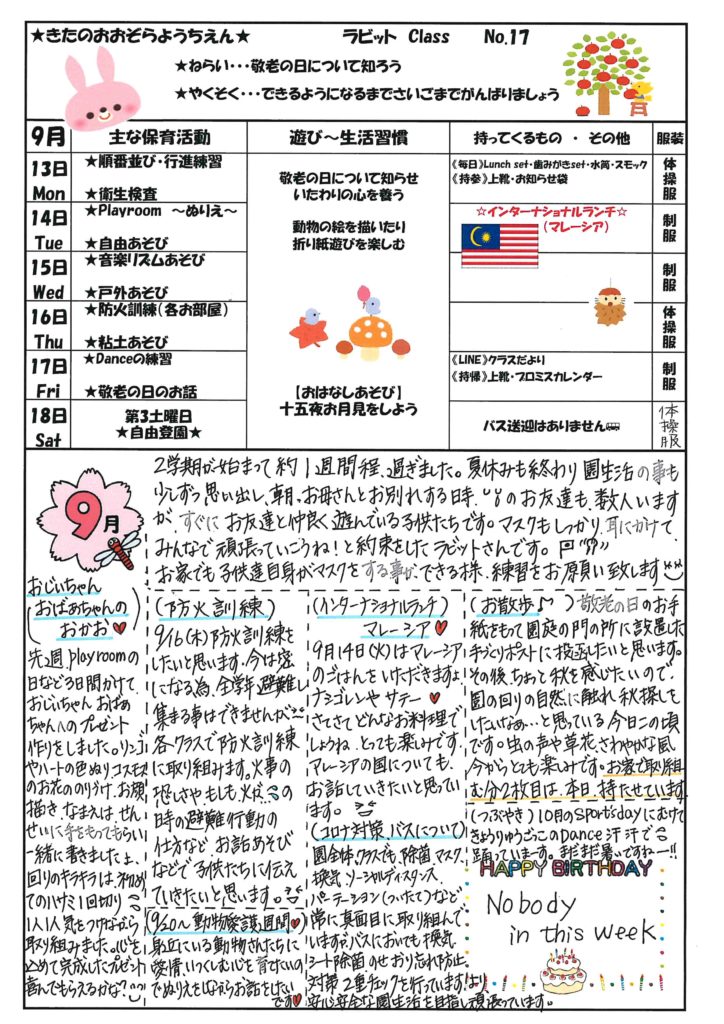 ★きたのおおぞらようちえん★
ラビット Class No.17
★ねらい・・・敬老の日について知ろう
★やくそく・・・できるようになるまでさいごまでがんばりましょう
9月 主な保育活動 遊び～生活習慣 持ってくるもの ・ その他 服装
13日 Mon
★順番並び・行進練習
★衛生検査
《毎日》Lunch set・歯みがきset・水筒・スモック
《持参》上靴・お知らせ袋
体操服
14日 Tue
★Playroom ～ぬりえ～
★自由あそび
☆インターナショナルランチ☆
(マレーシア)
制服
15日 Wed
★音楽リズムあそび
★戸外あそび
制服
16日 Thu
★防火訓練(各お部屋)
★粘土あそび
体操服
17日 Fri
★Danceの練習
★敬老の日のお話
《LINE》クラスだより
《持帰》上靴・プロミスカレンダー
制服
18日 Sat
第3土曜日
★自由登園★
バス送迎はありません
体操服
敬老の日について知らせ
いたわりの心を養う
動物の絵を描いたり
折り紙遊びを楽しむ
【おはなしあそび】
十五夜お月見をしよう
9月
2学期が始まって約1週間程、過ぎました。夏休みも終わり園生活の事も
少しずつ思い出し、朝、お母さんとお別れする日時、 のお友達も、数人います
が、すぐに お友達と仲良く遊んでいる子供たちです。マスクもしっかり、耳にかけて、
みんなで頑張っていこうね!と約束をしたラビットさんです。
お家でも子供達自身がマスクをする事が、できる様、練習をお願い致します
おじいちゃん
おばぁちゃんの
おかお
先週、playroomの
日など3日間かけて、
おじぃちゃん おばぁ
ちゃんへのプレゼント
作りをしました。リンゴ
やハートの色ぬり コスモス
のお花ののり付け、お顔
描き、なまえは、せん
せいに手をもってもらい
一緒に書きましたよ、
回りのキラキラは、初めて
ののハサミ1回切り
1人1人気をつけながら
取り組みました。心を
込めて完成したプレゼント
喜んでもらえるかな?
(防火訓練)
9/16(木)防火訓練を
したいと思います。今は密
になる為、全学年避難し
集まる事はできませんが
各クラスで防火訓練
に取り組みます。火事の
恐しさや もしも、火が…の
時の避難行動の
仕方など お話あそび
などで子供たちに伝え
ていきたいと思います。
(9/20～動物愛護週間)
身近にいる動物さんたちに
愛情、いつくしむ心を育てたいの
でぬりえをしながらお話をしたい
です
(インターナショナルランチ)
マレーシア
9月14日(火)はマレーシア
のごはんをいただきますよ
ナシゴレンや サテー
さてさて どんなお料理で
しょうね、とっても楽しみです。
マレーシアの国についても、
お話していきたいと思ってい
ます。
(コロナ対策、バスについて)
園全体、クラスでも、除菌、マスク、
換気、ソーシャルディスタンス、
パーテーション(ついたて)など
常に真面目に取り組んで
いますが、バスにおいても、換気
シート除菌のせおり忘れ防止、
対策 2重チェックを行っています!より
安心安全な園生活を目指し頑張っています。
(お散歩♪)敬老の日のお手
紙をもって園庭の門の所に設置した
手づくりポストに投函したいと思います。
その後、ちょっと秋を感じたいので、
園の回りの自然に触れ 秋探しを
したいなぁ…と思っている今日この頃
です。虫の声や草花、さわやかな風
今からとっても楽しみです。お家で取り組
む分2枚目は、本日、持たせています
(つぶやき)10月のsports'dayにむけて
きょうりゅうごっこのDance 汗汗で
踊っています。まだまだ暑いですねー!!
HAPPY BIRTHDAY
Nobody
in this week